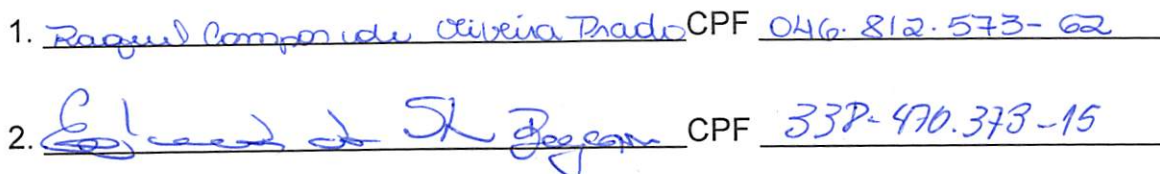 1. Raquel Campos de Oliveira Prado CPF 046.812.573-62
2. CPF 338-470.373-15